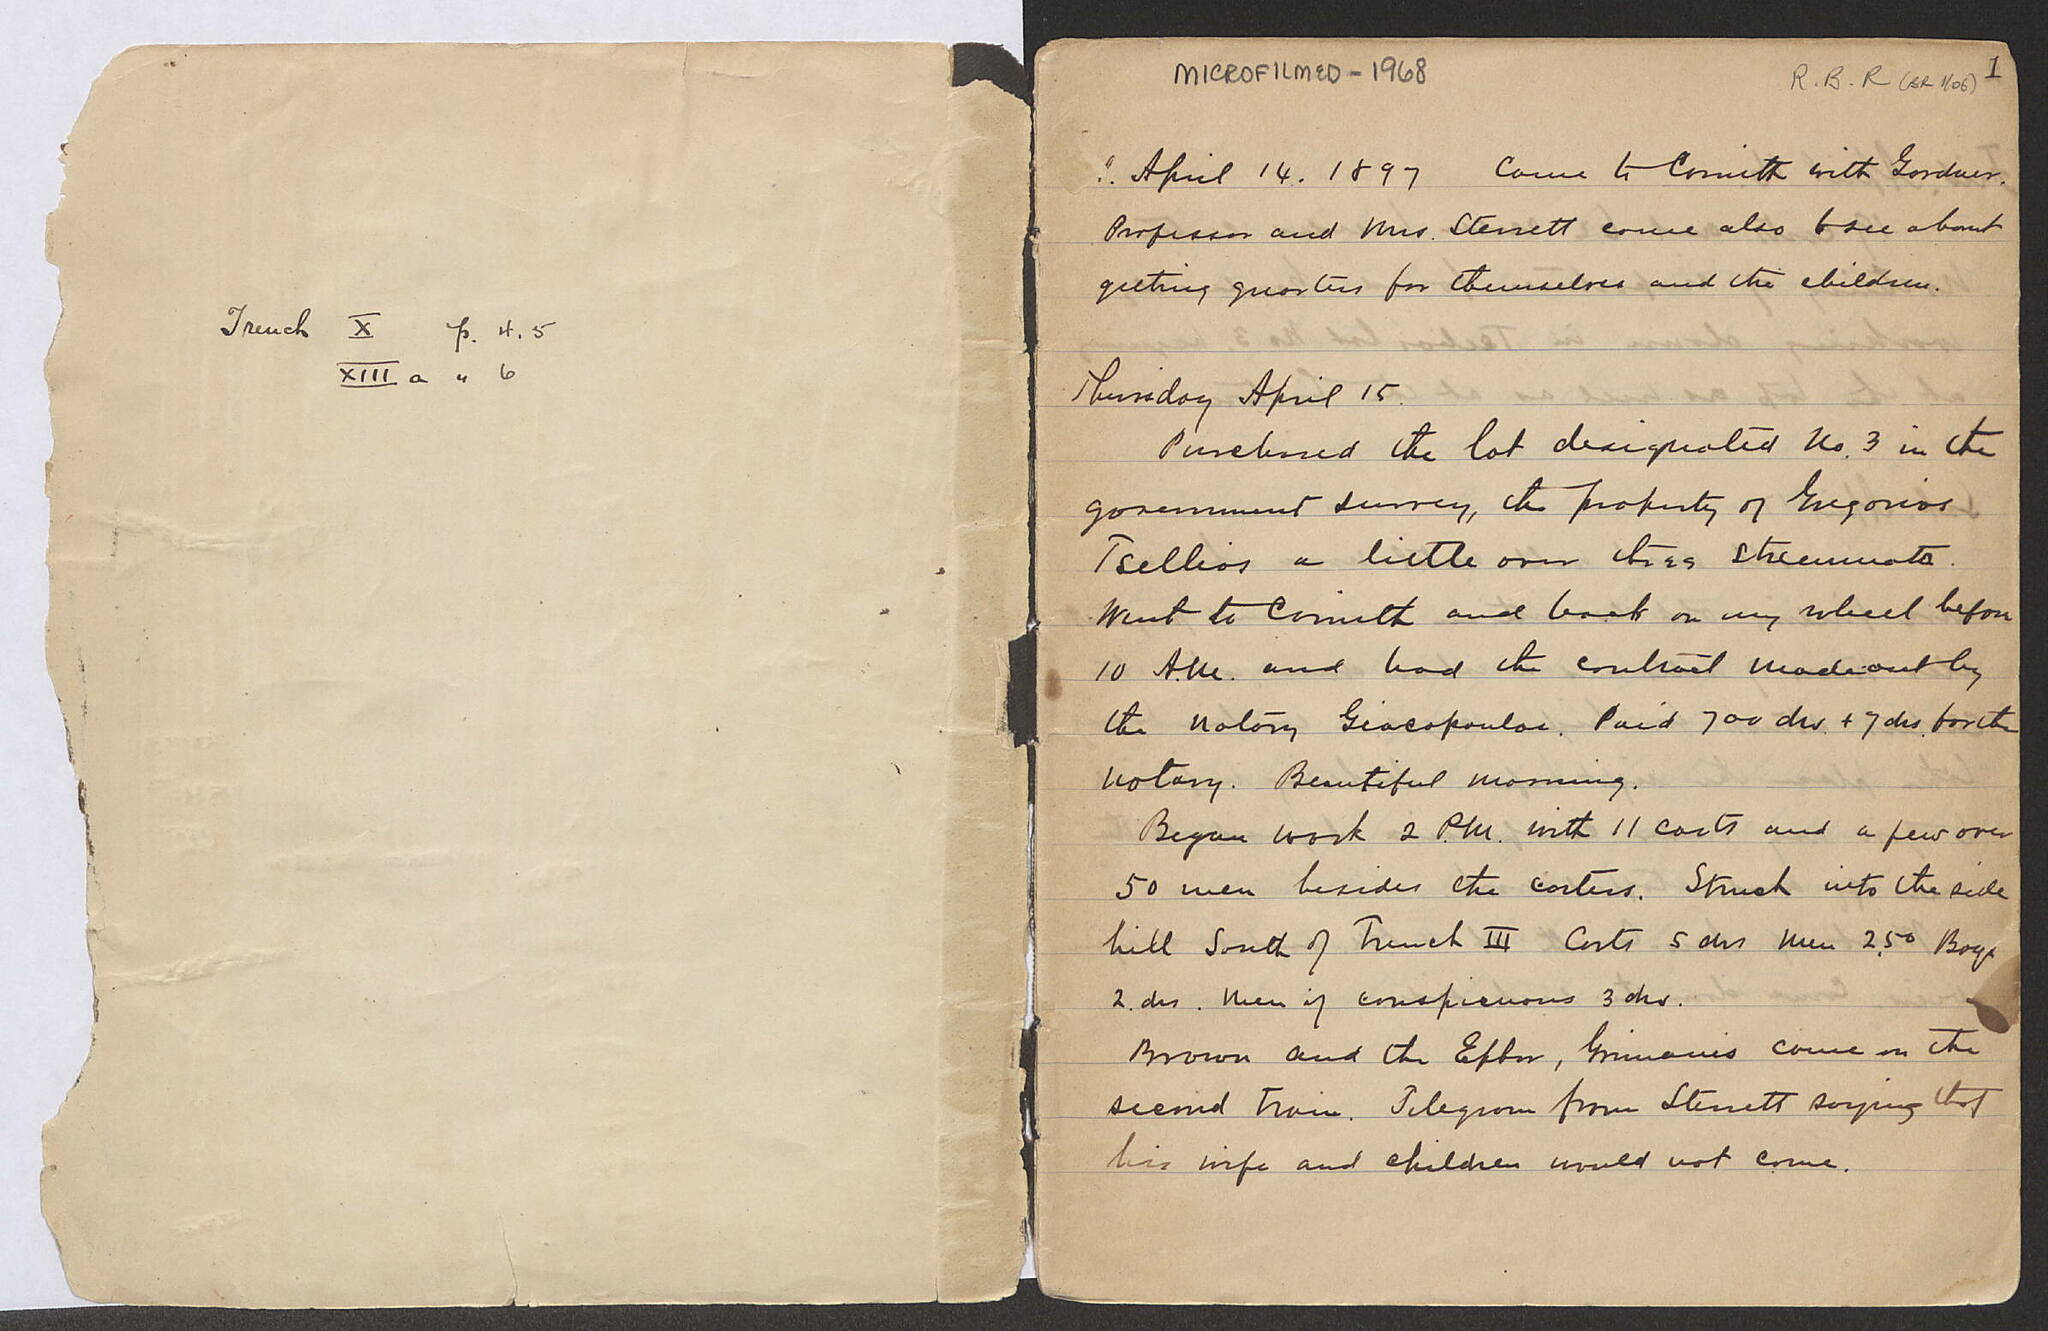 Trench X p. 4. 5
XIII a " 6
MICROFILMED - 1968
R. B. R (BR 1/06) 1
April 14. 1897 Came to Corinth with Gardner.
Professor and Mrs. Sterrett come also to see about
getting quarters for themselves and the children.
Thursday April 15.
Purchased the lot designated No. 3 in the
government survey, the property of Gregorios
Tsellios a little over three stremmata.
Went to Corinth and back on my wheel before
10 A.M. and had the contract made out by
the notary Giacopoulos. Paid 700 drs. + 7 drs. for the
notary. Beautiful morning.
Began work 2 P.M. with 11 carts and a few over
50 men besides the carters. Struck into the side
hill South of Trench III Carts 5 drs Men 2.50 Boys
2. drs. Men if conspicuous 3 drs.
Brown and the Ephor, Grimanis come on the
second train. Telegram from Sterrett saying that
his wife and children would not come.